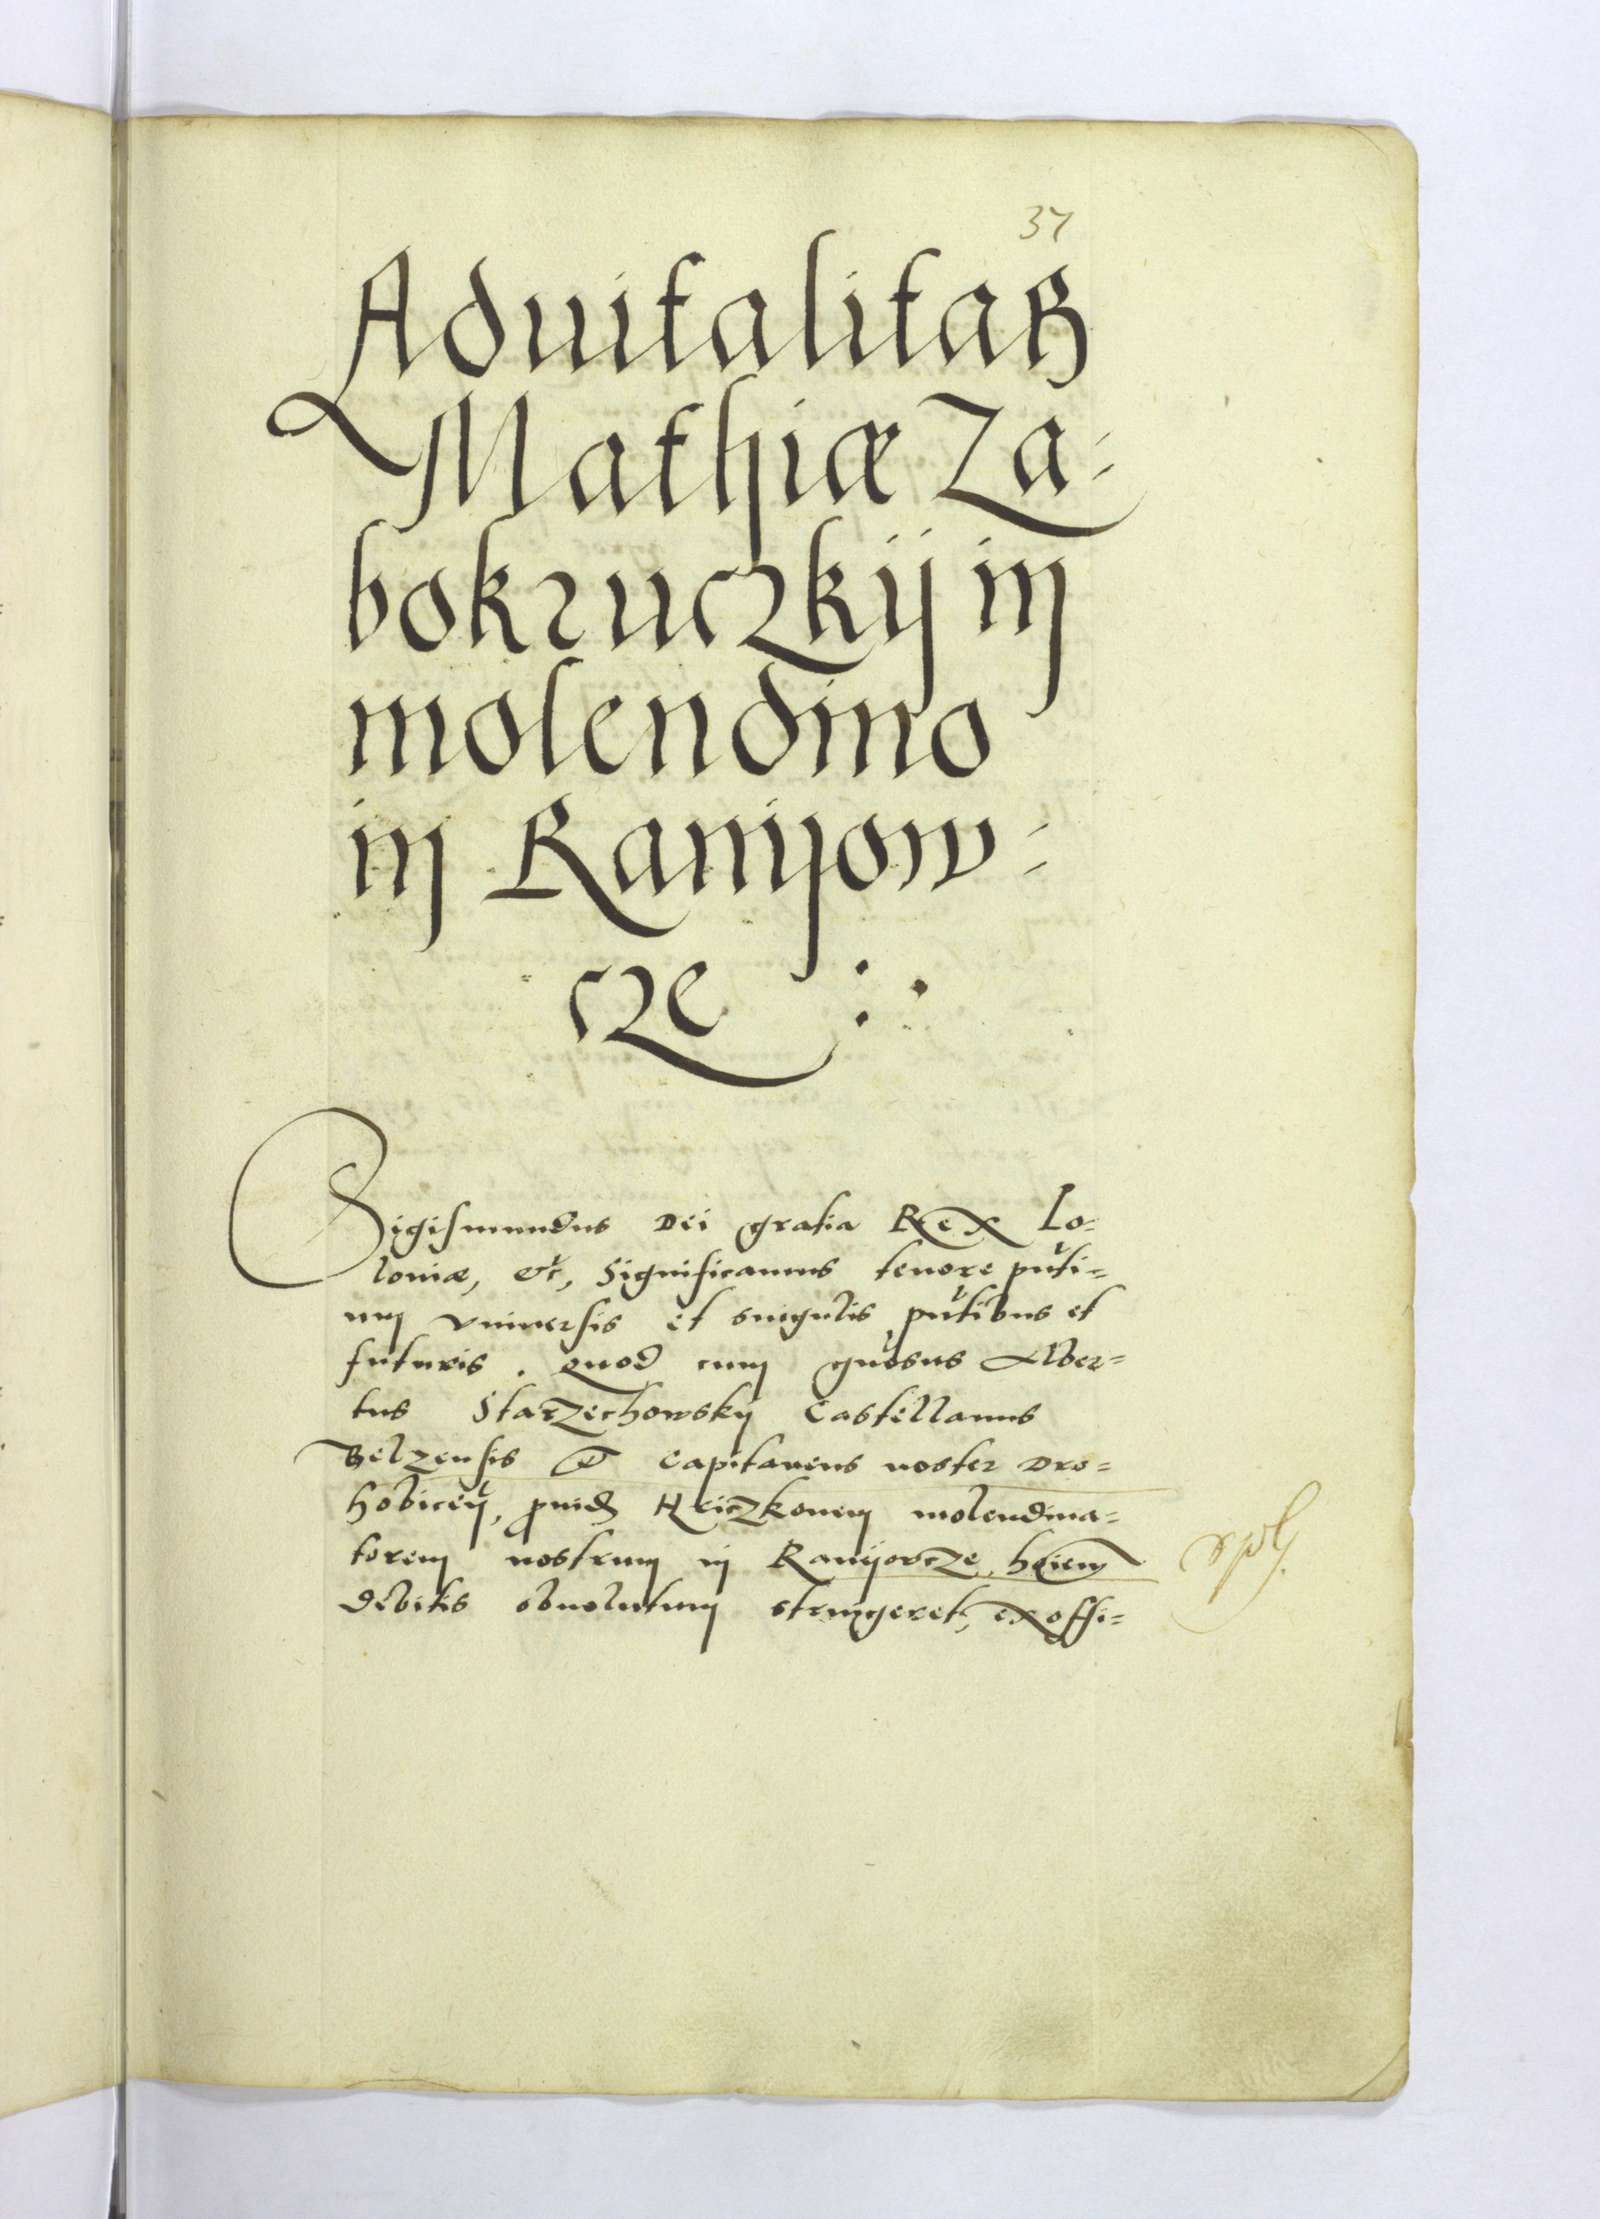 37
Aduitalitas
Mathiæ Za-
bokruczkij in
molendino
in Ranijow-
cze :·
Sigismundus Dei gratia Rex Po-
loniæ, etc, Significamus tenore pnti-
um vniuersis et singulis pntibus et
futuris. Quod cum gnosus Alber-
tus Starzechowskij Castellanus
Belzensis et Capitaneus noster Dro-
hobiceñ, prouid Hriczkonem molendina-
torem nostrum in Ranijowcze, hoiem
debitis obuolutum stringeret, ex offi-